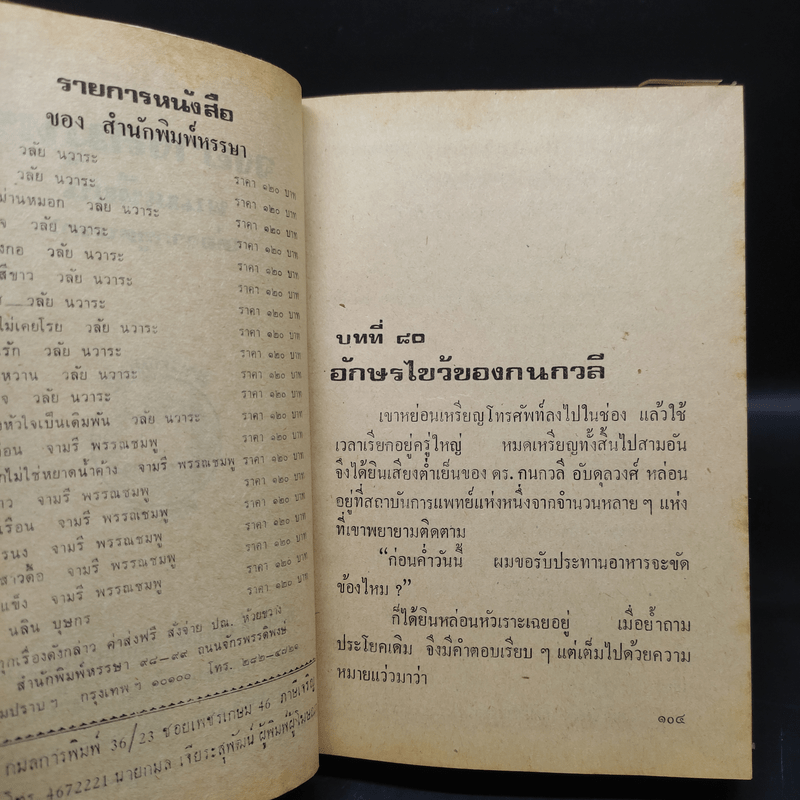 รายการหนังสือ
ของ สำนักพิมพ์หรรษา
วลัย นวาระ ราคา ๑๒๐ บาท
วลัย นวาระ ราคา ๑๒๐ บาท
ม่านหมอก วลัย นวาระ ราคา ๑๒๐ บาท
จ วลัย นวาระ ราคา ๑๒๐ บาท
งกอ วลัย นวาระ ราคา ๑๒๐ บาท
สีขาว วลัย นวาระ ราคา ๑๒๐ บาท
วลัย นวาระ ราคา ๑๒๐ บาท
ไม่เคยโรย วลัย นวาระ ราคา ๑๒๐ บาท
รัก วลัย นวาระ ราคา ๑๒๐ บาท
หวาน วลัย นวาระ ราคา ๑๒๐ บาท
จ วลัย นวาระ ราคา ๑๒๐ บาท
งหัวใจเป็นเดิมพัน วลัย นวาระ ราคา ๑๒๐ บาท
อน จามรี พรรณชมพู ราคา ๑๒๐ บาท
กไม่ใช่หยาดน้ำค้าง จามรี พรรณชมพู ราคา ๑๒๐ บาท
าว จามรี พรรณชมพู ราคา ๑๒๐ บาท
เรือน จามรี พรรณชมพู ราคา ๑๒๐ บาท
รนง จามรี พรรณชมพู ราคา ๑๒๐ บาท
สาวดื้อ จามรี พรรณชมพู ราคา ๑๒๐ บาท
แข็ง จามรี พรรณชมพู ราคา ๑๒๐ บาท
นลิน บุษกร
ทุกเรื่องดังกล่าว ค่าส่งฟรี สั่งจ่าย ปณ. ห้วยขวาง
สำนักพิมพ์หรรษา ๙๘-๙๙ ถนนจักรพรรดิพงษ์
มปราบฯ กรุงเทพฯ ๑๐๑๐๐ โทร. ๒๘๒-๔๐๒๑
กมลการพิมพ์ 36/23 ซอยเพชรเกษม 46 ภาษีเจริญ
โทร. 4672221 นายกมล เจียระสุพัฒน์ ผู้พิมพ์ผู้โฆษณา
บทที่ ๘๐
อักษรไขว้ของกนกวลี
เขาหย่อนเหรียญโทรศัพท์ลงไปในช่อง แล้วใช้
เวลาเรียกอยู่ครู่ใหญ่ หมดเหรียญทั้งสิ้นไปสามอัน
จึงได้ยินเสียงต่ำเย็นของ ดร. กนกวลี อับดุลวงศ์ หล่อน
อยู่ที่สถาบันการแพทย์แห่งหนึ่งจากจำนวนหลาย ๆ แห่ง
ที่เขาพยายามติดตาม
“ก่อนค่ำวันนี้ ผมขอรับประทานอาหารจะขัด
ข้องไหม ?”
ก็ได้ยินหล่อนหัวเราะเฉยอยู่ เมื่อย้ำถาม
ประโยคเดิม จึงมีคำตอบเรียบ ๆ แต่เต็มไปด้วยความ
หมายแว่วมาว่า
๑๐๔